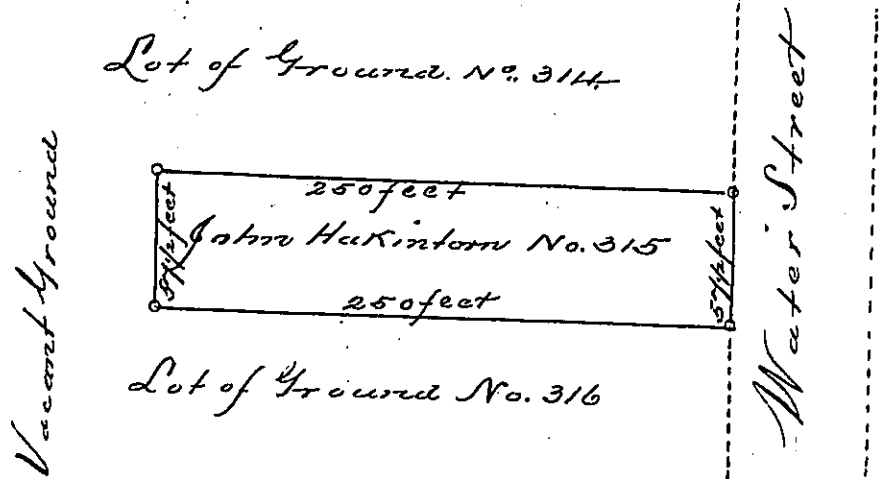 Lot of Ground. No. 314
Vacant Ground
250 feet
57 1/2 feet
John Hakintorn No. 315
57 1/2 feet
250 feet
Lot of Ground No. 316
Water Street